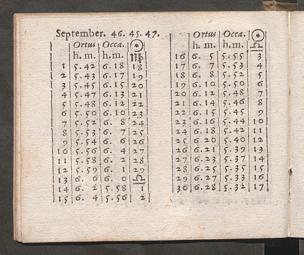 September. 46. 45. 47.
Ortus Occa. ☉
h. m. h. m. ♍
1 5. 42 6. 18 18
2 5. 43 6. 17 19
3 5. 45 6. 15 20
4 5. 47 6. 13 21
5 6. 12 22
6 5. 50 6. 10 23
7 5. 52 6. 8 24
8 5. 53 6. 7 25
9 26
10 5. 56 6. 4 27
11 5. 58 6. 2 28
12 5. 59 6. 1 29
13 6. 0 6. 0 ♎
14 6. 2 5. 58 1
15 6. 4 5. 56 2
Ortus Occa. ☉
h. m. h. m. ♎
16 6. 5 5. 55 3
17 6. 7 5. 53 4
18 6. 8 5. 52 5
19 6. 10 5. 50 6
20 6. 12 5. 48 7
21 6. 14 5. 46 8
22 6. 15 5. 45 9
23 6. 16 5. 44 10
24 6. 18 5. 42 11
25 6. 20 5. 40 12
26 6. 21 5. 39 13
27 6. 23 5. 37 14
28 6. 25 5. 35 15
29 6. 27 5. 33 16
30 6. 28 5. 32 17